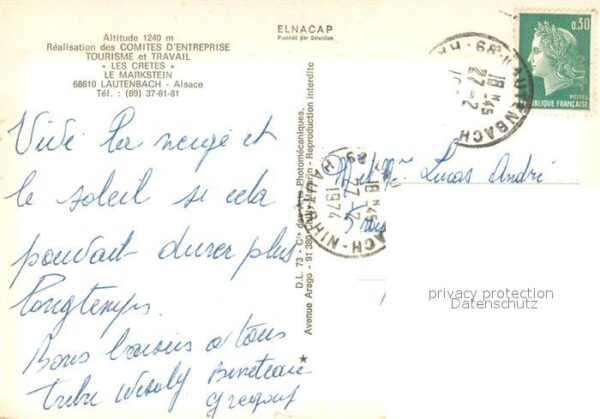 Altitude 1240 m
Réalisation des COMITES D'ENTREPRISE
TOURISME et TRAVAIL
« LES CRETES »
LE MARKSTEIN
68610 LAUTENBACH - Alsace
Tél. : (89) 37-61-81
ELNACAP
Procédé par Sélection
Vive la neige et
le soleil si cela
pouvait durer plus
longtemps.
Bons baisers à tous
Tribu
D.L. 73 - Cie des Arts Photomécaniques,
Avenue Arago - 91 380 Chilly-Mazarin - Reproduction interdite
68
LAUTENBACH
18 H 45
27-2
1974
0,30
POSTES
REPUBLIQUE FRANÇAISE
M et Mme Lucas André
privacy protection
Datenschutz